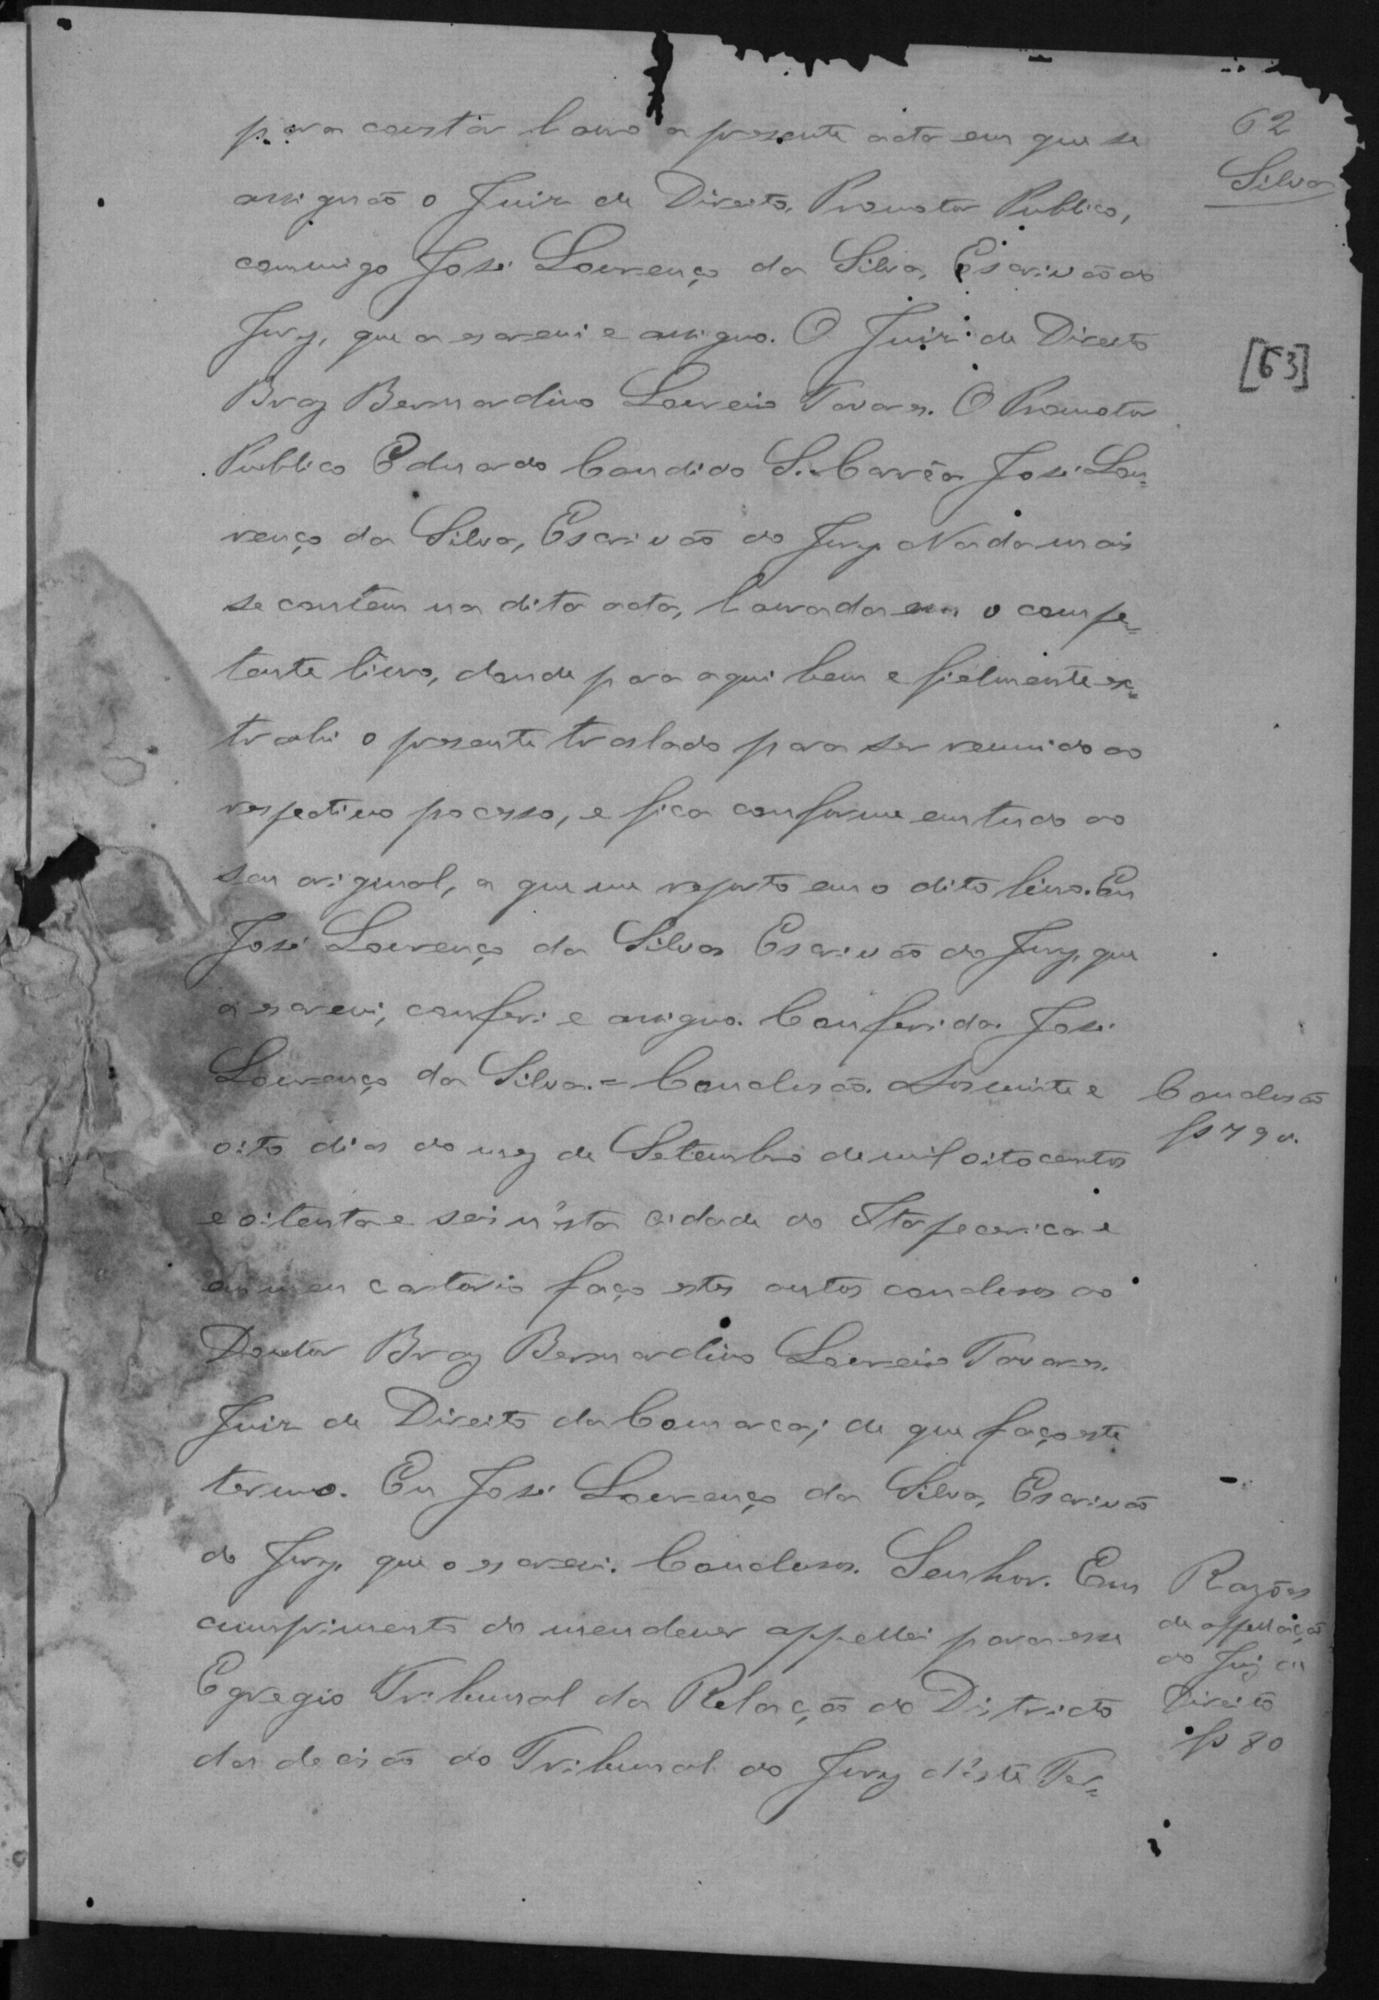 62
Silva
[63]
para constar lavro a presente acta em que se
assignão o Juiz de Direito, Promotor Publico,
commigo José Lourenço da Silva, Escrivão do
Jury, que a escrevi e assigno. O Juiz de Direito
Braz Bernardino Loureiro Tavares. O Promotor
Publico Eduardo Candido S. Corrêa José Lou-
renço da Silva, Escrivão do Jury. Nada mais
se contem na dita acta, lavrada em o compe-
tente livro, donde para aqui bem e fielmente ex-
trahi o presente traslado para ser reunido ao
respectivo pocesso, e fica conforme em tudo ao
seu original, a que me reporto em o dito livro. Eu
José Lourenço da Silva Escrivão do Jury, que
a escrevi, conferi e assigno. Conferida. José
Lourenço da Silva. = Conclusão. Aos vinte e
oito dias do mez de Setembro de mil oitocentos
e oitenta e seis n'esta cidade do Itapecerica e
em meu cartorio faço estes autos conclusos ao
Doutor Braz Bernardino Loureiro Tavares.
Juiz de Direito da Comarca; de que faço este
termo. Eu José Lourenço da Silva, Escrivão
do Jury, que o escrevi. Conclusos. Senhor. Em
cumprimento do meu dever appellei para esse
Egregio Tribunal da Relação do Districto
da decisão do Tribunal do Jury d'este Ter-
Conclusão
fs 79 v.
Razões
de appellação
do Juiz de
Direito
fs 80